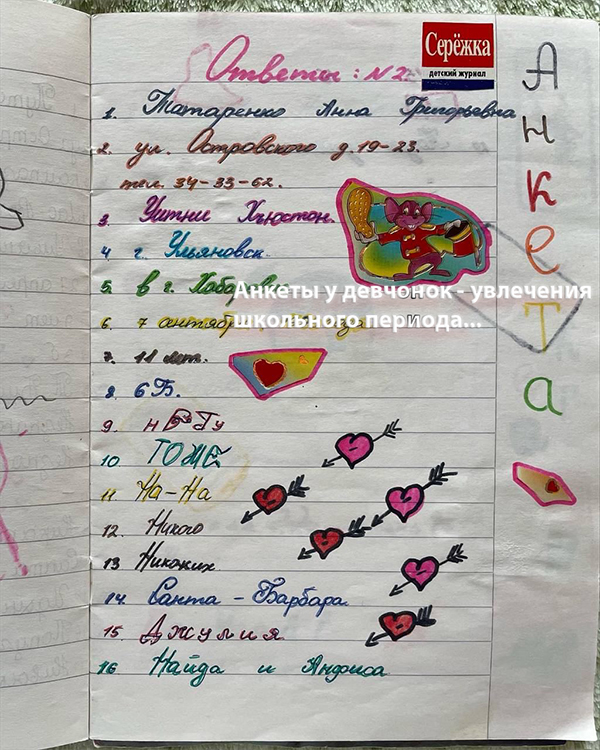 Серёжка
детский журнал
Ответы: N 2
1. Татаренко Анна Григорьевна
2. ул. Островского д. 19-23.
тел. 34-33-62.
3. Уитни Хьюстон.
4 г. Ульяновск.
5. в г.
Анкеты у девчонок - увлечения
6. 7 сентября
школьного периода...
7. 11 лет.
8. 6 Б.
9. нету
10 ТОЖЕ
11 На-На
12. Никого
13 Никаких
14. Санта - Барбара.
15. Джулия
16 Найда и Анфиса
А
н
к
е
т
а